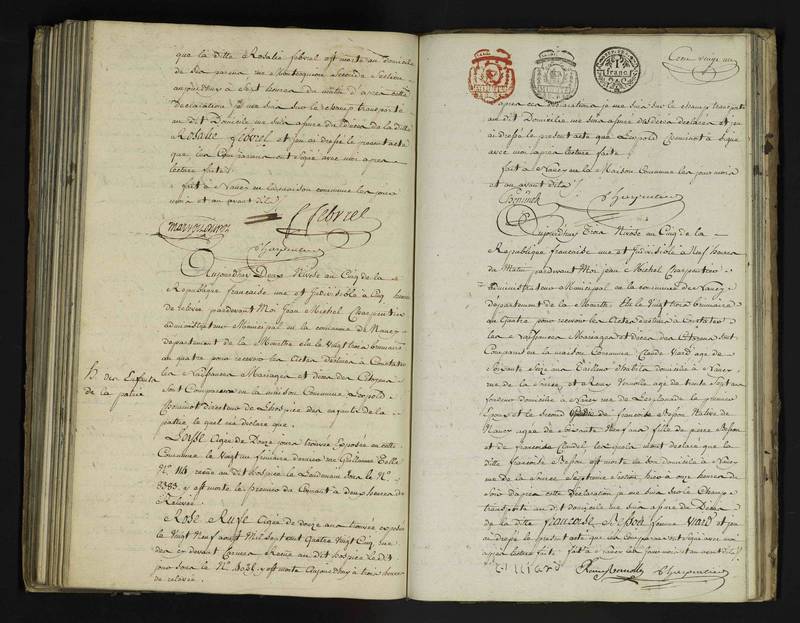 que la ditte Rosalie febrel est morte au domicile
de ses parens rue Montesquiou Seconde Section
aujourdhuy à Sept heures du matin d'apres cette
Declaration je me suis sur le champ transporté
au dit Domicile me suis assuré du Décès de la ditte
Rosalie febrel et j'en ai dressé le present acte
que les Comparans ont Signé avec moi apres
lecture faite
fait à Nancy en la maison commune les jour
mois et an avant dits
febrel
Charpentier
Aujourdhuy Deux Nivose au Cinq de la
Republique francaise une et Indivisible à Cinq heures
de relevée pardevant Moi Jean Michel Charpentier
administrateur Municipal de la commune de Nancy
departement de la Meurthe élu le Vingt trois brumaire
au quatre pour recevoir les Actes destinés à Constater
les Naissances Mariages et décès des Citoyens
Sont Comparus en la maison Commune Léopold
directeur de l'hospice des enfants de la
patrie le quel me déclare que
h. des Enfants
de la patrie
Louise agée de Douze jours trouvée exposée en cette
Commune le Vingt un frimaire dernier rue Guillaume
N°. 116 recue au dit hospice le Lendemain sous le N°.
8383. y est morte le premier du Courant à deux heures de
Relevée
Rose Ruse agée de douze ans trouvée exposée
le Vingt Neuf aout Mil Sept cent Quatre Vingt Cinq rue
des cy devant Carmes Recue au dit hospice le dit
jour sous le N°. y est morte aujourdhuy à trois heures
de relevée
1
franc
Cent vingt un
d'apres cette déclaration je me suis sur le champ transporté
au dit Domicile me suis assuré du Décès déclaré et j'en
ai dressé le present acte que Léopold a Signé
avec moi apres lecture faite
fait à Nancy en la Maison Commune les jour mois
et an avant dits
Charpentier
Aujourdhuy Trois Nivose au Cinq de la
Republique francaise une et Indivisible à Neuf heures
du Matin pardevant Moi Jean Michel Charpentier
administrateur Municipal de la commune de Nancy
département de la Meurthe élu le Vingt trois brumaire
au Quatre pour recevoir les Actes destinés à Constater
les Naissances Mariages et décès des Citoyens Sont
Comparus en la maison Commune Claude Viard agé de
Soixante Six ans Tailleur d'habits domicilié à Nancy
rue de la Source et Remy agé de trente Sept ans
domicilié à Nancy rue de L'esplanade le premier
Epoux et le Second de francoise Besson Native de
Nancy agée de Soixante Neuf ans fille de pierre Besson
et de francoise Claudel les quels m'ont déclaré que la
ditte francoise Besson est morte en son domicile à Nancy
rue de la Source Septieme Section hier à onze heures du
Soir d'apres cette Déclaration je me suis sur le Champ
transporté au dit domicile me suis assuré du Décès
de la dite francoise Besson femme Viard et j'en
ai dressé le present acte que les comparans ont signé avec moi
apres lecture faite fait à Nancy les jour mois et an avant dits
Viard Charpentier